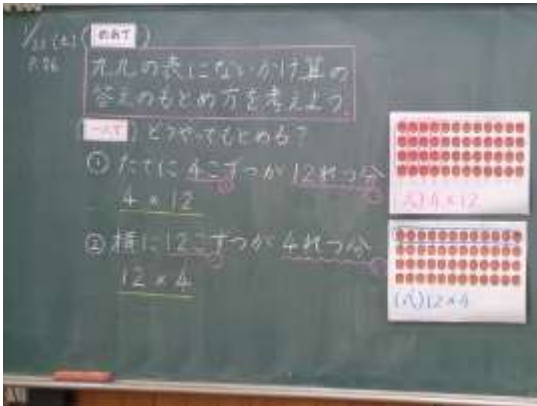 めあて
九九の表にないかけ算の
答えのもとめ方を考えよう
どうやってもとめる?
① たてに 4こずつが 12れつ分
4×12
② 横に 12こずつが 4れつ分
12×4
(式) 4×12
(式) 12×4